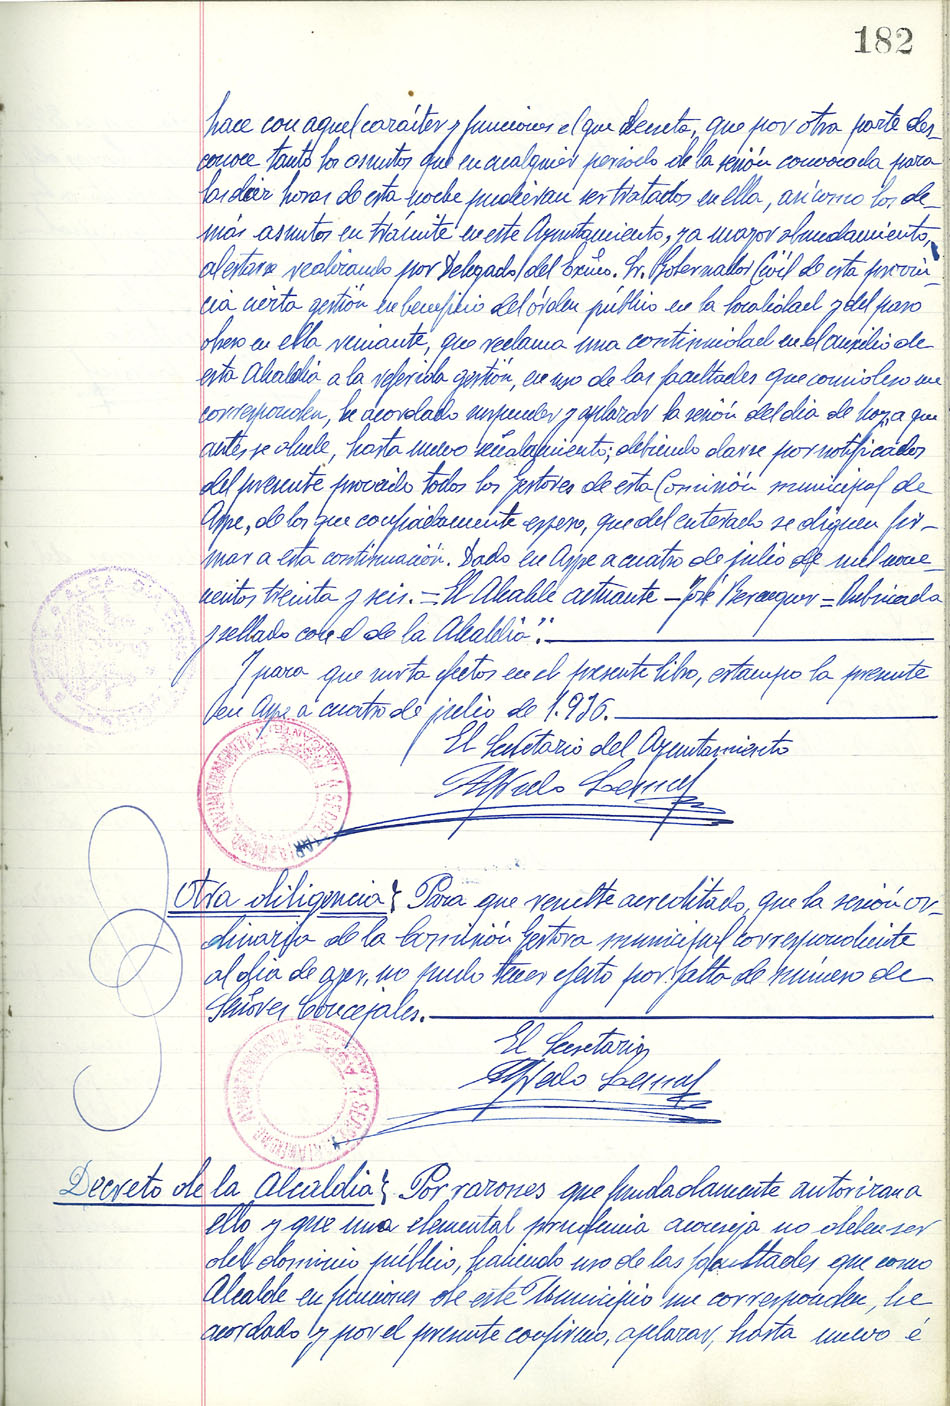 182
hace con aquel carácter y funciones el que decreta, que por otra parte des-
conoce tanto los asuntos que en cualquier periodo de la sesión convocada para
las diez horas de esta noche pudieran ser tratados en ella, asi como los de-
más asuntos en trámite en este Ayuntamiento, y a mayor abundamiento,
al estarse realizando por Delegado del Exmo. Sr. Gobernador Civil de esta provin-
cia cierta gestión en beneficio del órden público en la localidad y del paro
obrero en ella reinante, que reclama una continuidad en el auxilio de
esta Alcaldia a la referida gestión, en uso de las facultades que como leso me
corresponden, he acordado suspender y aplazar la sesión del dia de hoy, a que
antes se alude, hasta nuevo señalamiento; debiendo darse por notificados
del presente proveido todos los Gestores de esta Comisión municipal de
Aspe, de los que confiadamente espero, que del enterado se dignen fir-
mar a esta continuación. Dado en Aspe a cuatro de julio de mil nove-
cientos treinta y seis.= El Alcalde actuante - José Berenguer = Rubricado
y sellado con el de la Alcaldia".
Y para que surta efectos en el presente libro, estampo la presente
en Aspe a cuatro de julio de 1.936.
El Secretario del Ayuntamiento
Otra diligencia} Para que resulte acreditado, que la sesión or-
dinaria de la Comisión Gestora municipal correspondiente
al dia de ayer, no pudo tener efecto por falta de número de
Señores Concejales.
El Secretario
Decreto de la Alcaldia} Por razones que fundadamente autorizan a
ello y que una elemental prudencia aconseja no deben ser
del dominio público, haciendo uso de las facultades que como
Alcalde en funciones de este Municipio me corresponden, he
acordado y por el presente confirmo, aplazar, hasta nuevo é